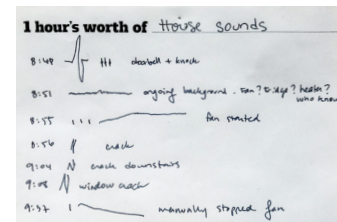 1 hour's worth of House sounds
8:48 doorbell + knock
8:51 ongoing background. Fan? Fridge? heater?
who knows
8:55 fan started
8:56 crack
9:04 crack downstairs
9:08 window crack
9:37 manually stopped fan